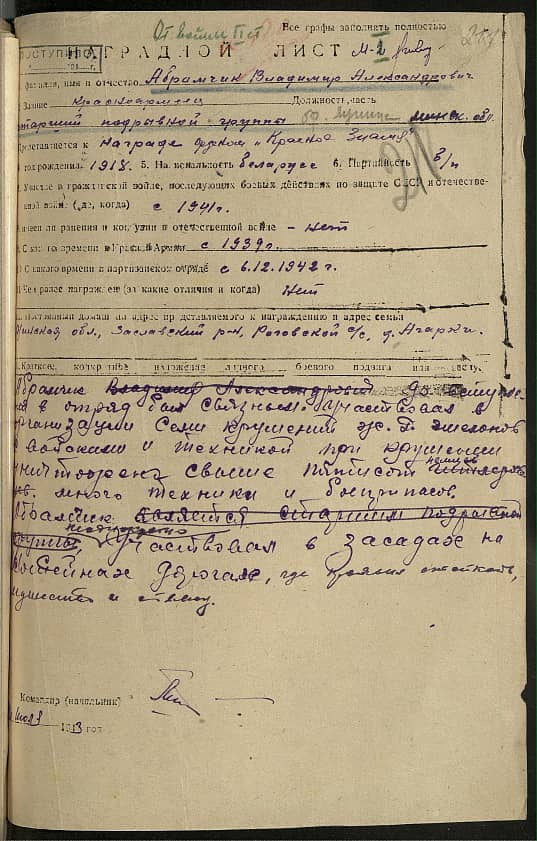 От. войны II ст
Все графы заполнять полностью
ПОСТУПИЛО
НАГРАДНОЙ ЛИСТ М-2
Фамилия, имя и отчество Абрамчик Владимир Александрович
Звание красноармеец Должность, часть
старший подрывной группы Минск. обл.
Представляется к награде орден "Красное Знамя"
год рождения 1918. 5. Национальность беларусс 6. Партийность б/п
Участие в гражданской войне, последующих боевых действиях по защите СССР и отечествен-
ной войне (где, когда) с 1941 г.
Имеет ли ранения и контузии в отечественной войне - нет
С какого времени в Красной Армии с 1939 г.
С какого времени в партизанском отряде с 6.12.1942 г.
Чем ранее награжден (за какие отличия и когда) Нет
Постоянный домашний адрес представляемого к награждению и адрес семьи
Минская обл., Заславский р-н, Роговской с/с, д. Агарки.
Краткое, конкретное изложение личного боевого подвига или
Абрамчик Владимир Александрович до вступле-
в отряд был связным. Участвовал в
организации семи крушений ж.д. эшелонов
с войсками и техникой при крушении
уничтожено свыше пятисот немцев
много техники и боеприпасов.
Абрамчик является старшим подрывной
группы, участвовал в засадах на
шоссейных дорогах, где проявил стойкость,
мужество и отвагу.
Командир (начальник)
июля 1943 год